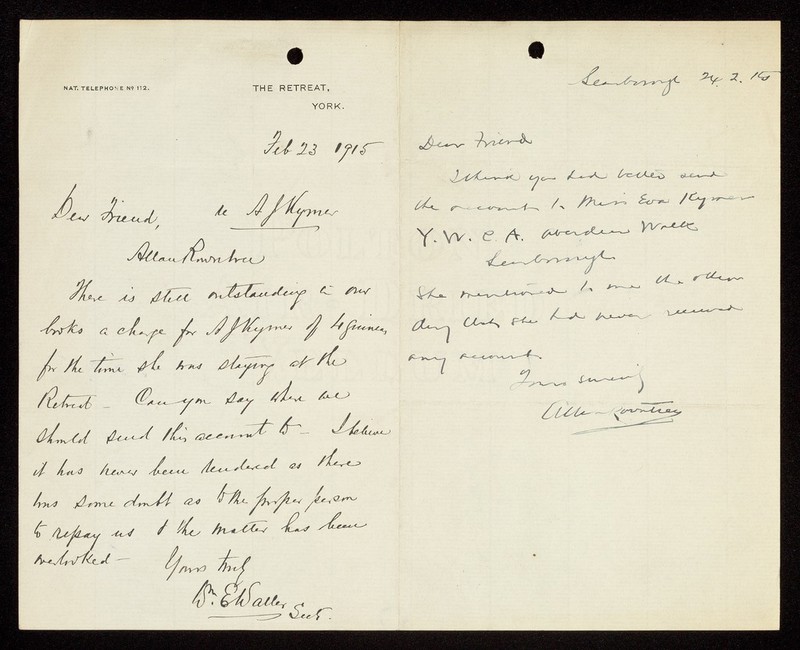 NAT. TELEPHONE Nº 112.
THE RETREAT,
YORK.
Feb 23 1915
Dear Friend, re A J Kymer
Allan Rowntree
There is still outstanding in our
books a charge for A J Kymer of 4 guineas
for the time she was staying at the
Retreat – Can you say where we
should send this account to – I believe
it has never been rendered as there
was some doubt as to the proper person
to repay us & the matter has been
overlooked –
Yours truly
Wm. E Waller Sect.
Scarborough 24. 2. 15
Dear Friend
I think you had better send
the account to Miss Eva Kymer
Y. W. C. A. Aberdeen Walk
Scarborough
She mentioned to me the other
day that she had never received
any account.
Yours sincerely
Allan Rowntree